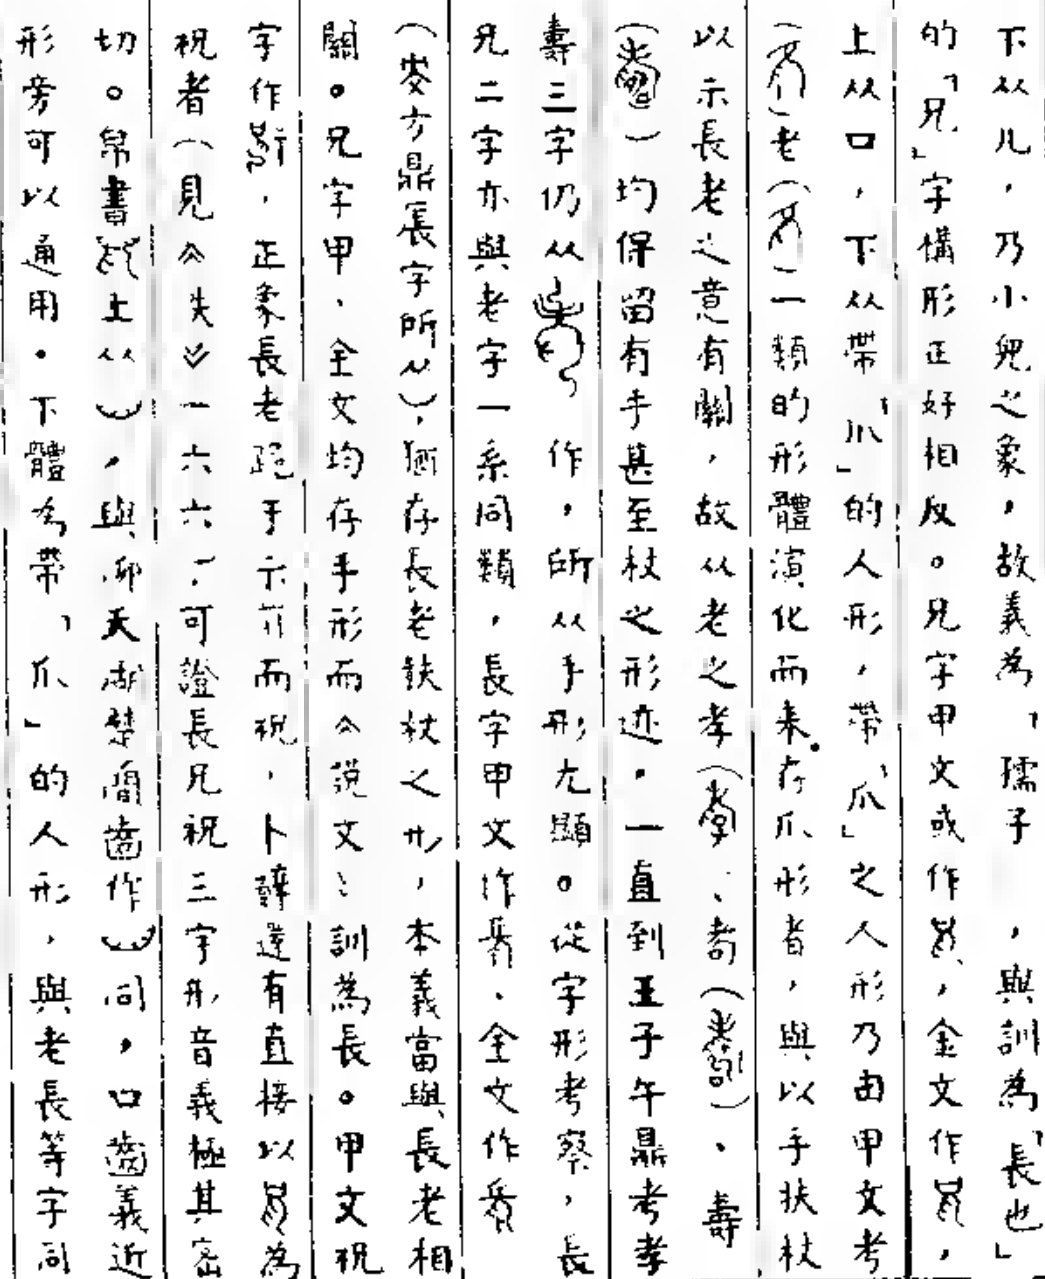 下从儿，乃小兒之象，故義為「孺子，與訓為「長也」
的「兄」字構形正好相反。兄字甲文或作，金文作，
上从口，下从帶「爪」的人形，帶「爪」之人形乃由甲文考
（）老（）一類的形體演化而来。存爪形者，與以手扶杖
以示長老之意有關，故从老之孝（）、耇（）、壽
（）均保留有手甚至杖之形迹。一直到王子午鼎考孝
壽三字仍从作，所从手形尤顯。從字形考察，長
兄二字亦與老字一系同類，長字甲文作、金文作
（㚄方鼎長字所从），猶存長老扶杖之形，本義當與長老相
關。兄字甲、金文均存手形而《説文》訓為長。甲文祝
字作，正象長老跪于示前而祝，卜辭還有直接以為
祝者（見《失》一六六），可證長兄祝三字形音義極其密
切。帛書上从，與天湖楚簡齒作同，口齒義近
形旁可以通用。下體為帶「爪」的人形，與老長等字同